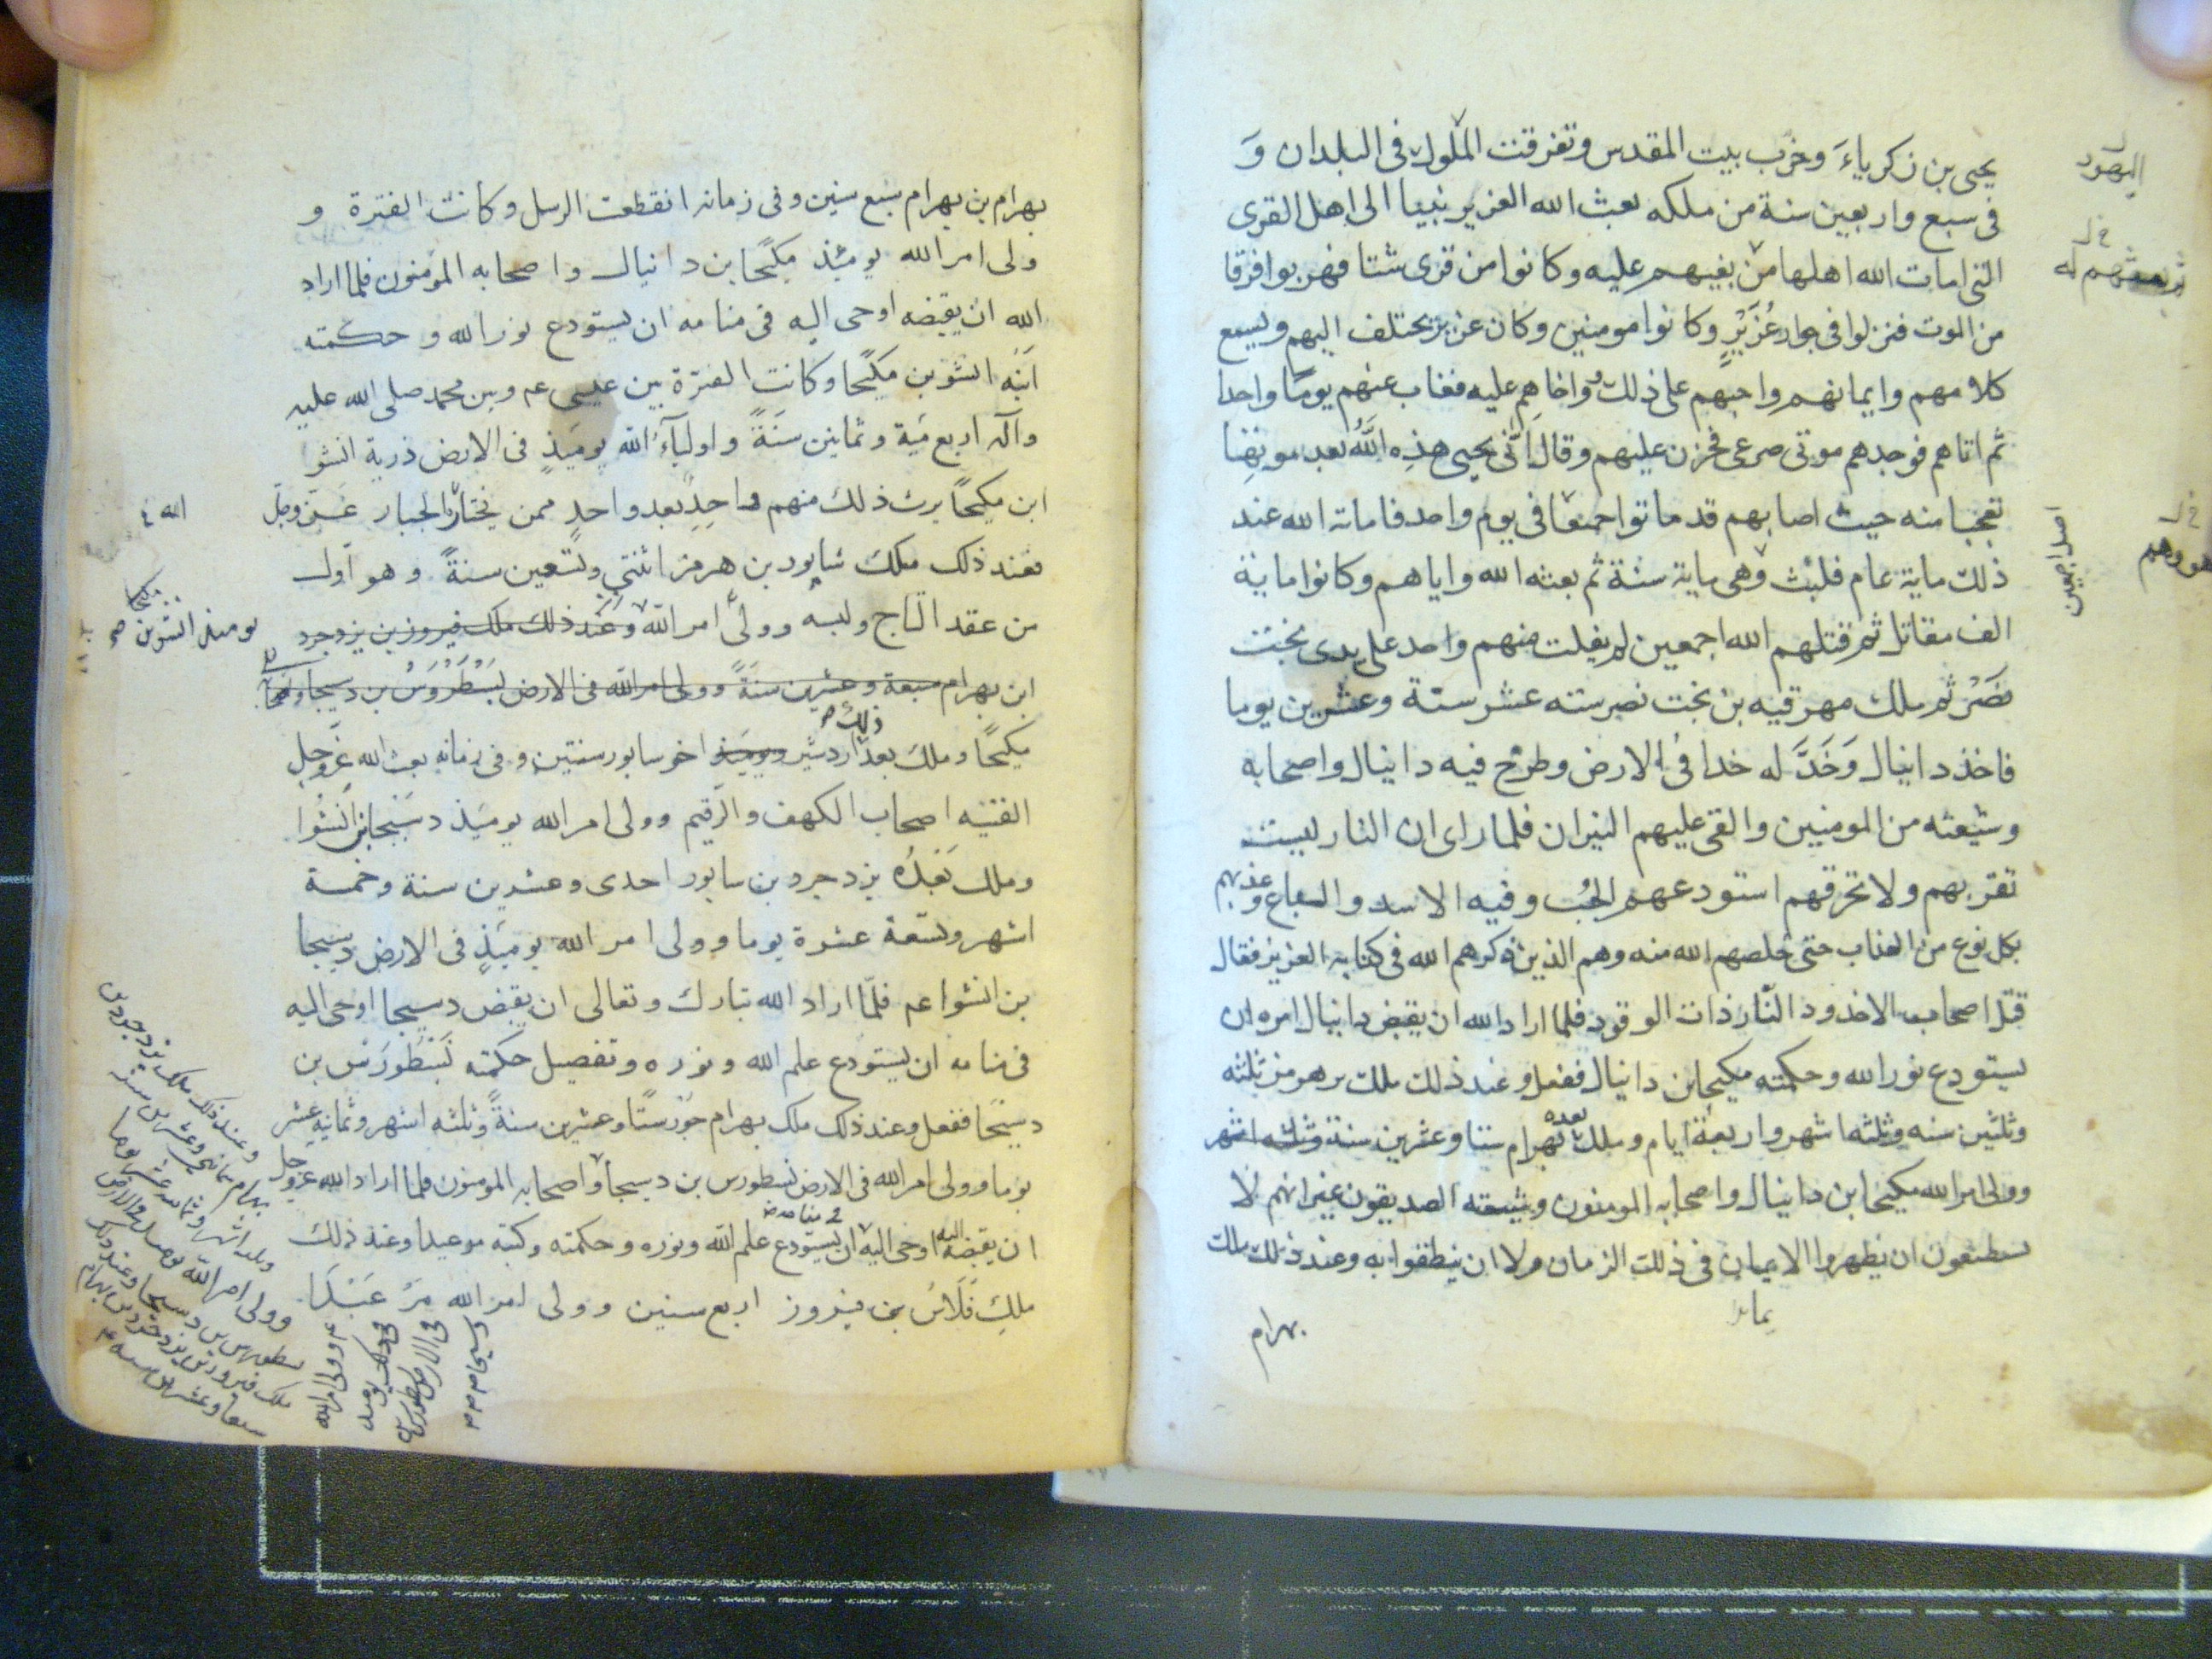 يحيى بن زكرياءَ وخرّب بيت المقدس وتفرقت الملوك فى البلدان وَ
فى سبع واربعين سنة من ملكه بعث الله العزير نبيا الى اهل القرى
التى امات الله اهلها من بغيهم عليه وكانوا من قرى شتا فهربوا فرقا
من الموت فنزلوا فى جوار عُزَيْرٍ وكانوا مومنين وكان عزير يختلف اليهم ويسمع
كلامهم وايمانهم واحبهم على ذلك وواخاهم عليه فغاب عنهم يومًا واحدا
ثم اتاهم فوجدهم موتى صرعى فحزن عليهم وقال انّى يحيى هذِه اللَّهُ بعد موتها
تعجبا منه حيث اصابهم قد ماتوا اجمعا فى يوم واحد فاماته الله عند
ذلك ماية عام فلبث وهى ماية سنة ثم بعثه الله واياهم وكانوا ماية
الف مقاتل ثم قتلهم الله اجمعين لم يفلت منهم واحد على يدى بخت
نصَرْ ثم ملك مهرقيه بن بخت نصر ستة عشر ستة وعشرين يوما
فاخذ دانيال وَخَدَّ له خدا فى الارض وطرح فيه دانيال واصحابه
وشيعته من المومنين والقى عليهم النيران فلما راى ان النار ليست
تقربهم ولا تحرقهم استودعهم الجُب وفيه الاسد والسباع وعذبهم
بكل نوع من العذاب حتى خلصهم الله منه وهم الذين ذكرهم الله فى كتابه العزيز فقال
قتل اصحاب الاخدود النّار ذات الوقود فلما اراد الله ان يقبض دانيال امره ان
يستودع نور الله وحكمته مكيحا بن دانيال ففعل وعند ذلك ملك هرمز ثلثه
وثلثين سنه وثلثه اشهر واربعة ايام وملك بعده بهرام ستا وعشرين سنة وثلثه اشهر
وولى امر الله مكيحا بن دانيال واصحابه المومنون وشيعته الصديقون غير انهم لا
يستطيعون ان يظهروا الايمان فى ذلك الزمان ولا ان ينطقوا به وعند ذلك ملك
بهرام
هو وهم
بهرام بن بهرام سبع سنين وفى زمانه انقطعت الرسل وكانت الفترة و
ولى امر الله يومئذ مكيحا بن دانيال واصحابه المؤمنون فلما اراد
الله ان يقبضه اوحى اليه فى منامه ان يستودع نور الله وحكمته
ابنه انشو بن مكيحا وكانت الفترة بين عيسى عم وبين محمد صلى الله عليه
وآله اربع مَية وثمانين سَنَةً واوليآءُ الله يوميَذٍ فى الارض ذرية انشو
ابن مكيحًا يرث ذلك منهم واحدٍ بعد واحدٍ ممن يختارُه الجبار عَزّ وجل
فعند ذلك ملك شابور بن هرمز اثنتى وتسعين سنةً وهو اول
من عقد التاج ولبسه وولى امر الله وعند ذلك ملك فيروز بن يزدجرد
ابن بهرام سبعة وعشرين سنةً وولى امر الله فى الارض نسطورس بن دسيحا
مكيحا وملك بعد ذلك اردشير اخو سابور سنتين وفى زمانهِ بعث الله عَزّوجل
الفتيه اصحاب الكهف والرّقيم وولى امر الله يوميَذ دسيحا بن انشوا
وملك بَعْدُه يزدجرد بن سابور احدى وعشرين سنة وخمسة
اشهر وتسعة عشرة يوما وولى امر الله يوميَذٍ فى الارض دسيحا
بن انشوا عم فلمّا اراد الله تبارك وتعالى ان يقبض دسيحا اوحى اليه
فى منامه ان يستودع علم الله ونوره وتفصيل حكمته نسْطُورَسْ بن
دسيحا ففعل وعند ذلك ملك بهرام جور ستًا وعشرين سنةً وثلثه اشهر وثمانيه عشر
يوما وولى امر الله فى الارض نسطورس بن دسيحا واصحابه المومنون فلما اراد الله عزوجل
ان يقبضه اليه اوحى اليه فى منامه ان يستودع علم الله ونوره وحكمته وكتبه مرعبدا وعند ذلك
ملكِ فَلَاسُ بن فيروز اربع سنين وولى امر الله مرْ عَبْدَا
الله
يومئذ انشو بن مكيحا
وعند ذلك ملك يزدجرد بن
بهرام ثمانى وعشرين سنة
وثلثه اشهر وثمانيه عشر يوما
وولى امر الله يومئذ فى الارض
نسطورس بن دسيحا وعند ذلك
ملك فيروز بن يزدجرد بن بهرام
سبعا وعشرين سنة
وولى امر الله
فى ذلك يومئذ
فى الارض نسطورس
دسيحا